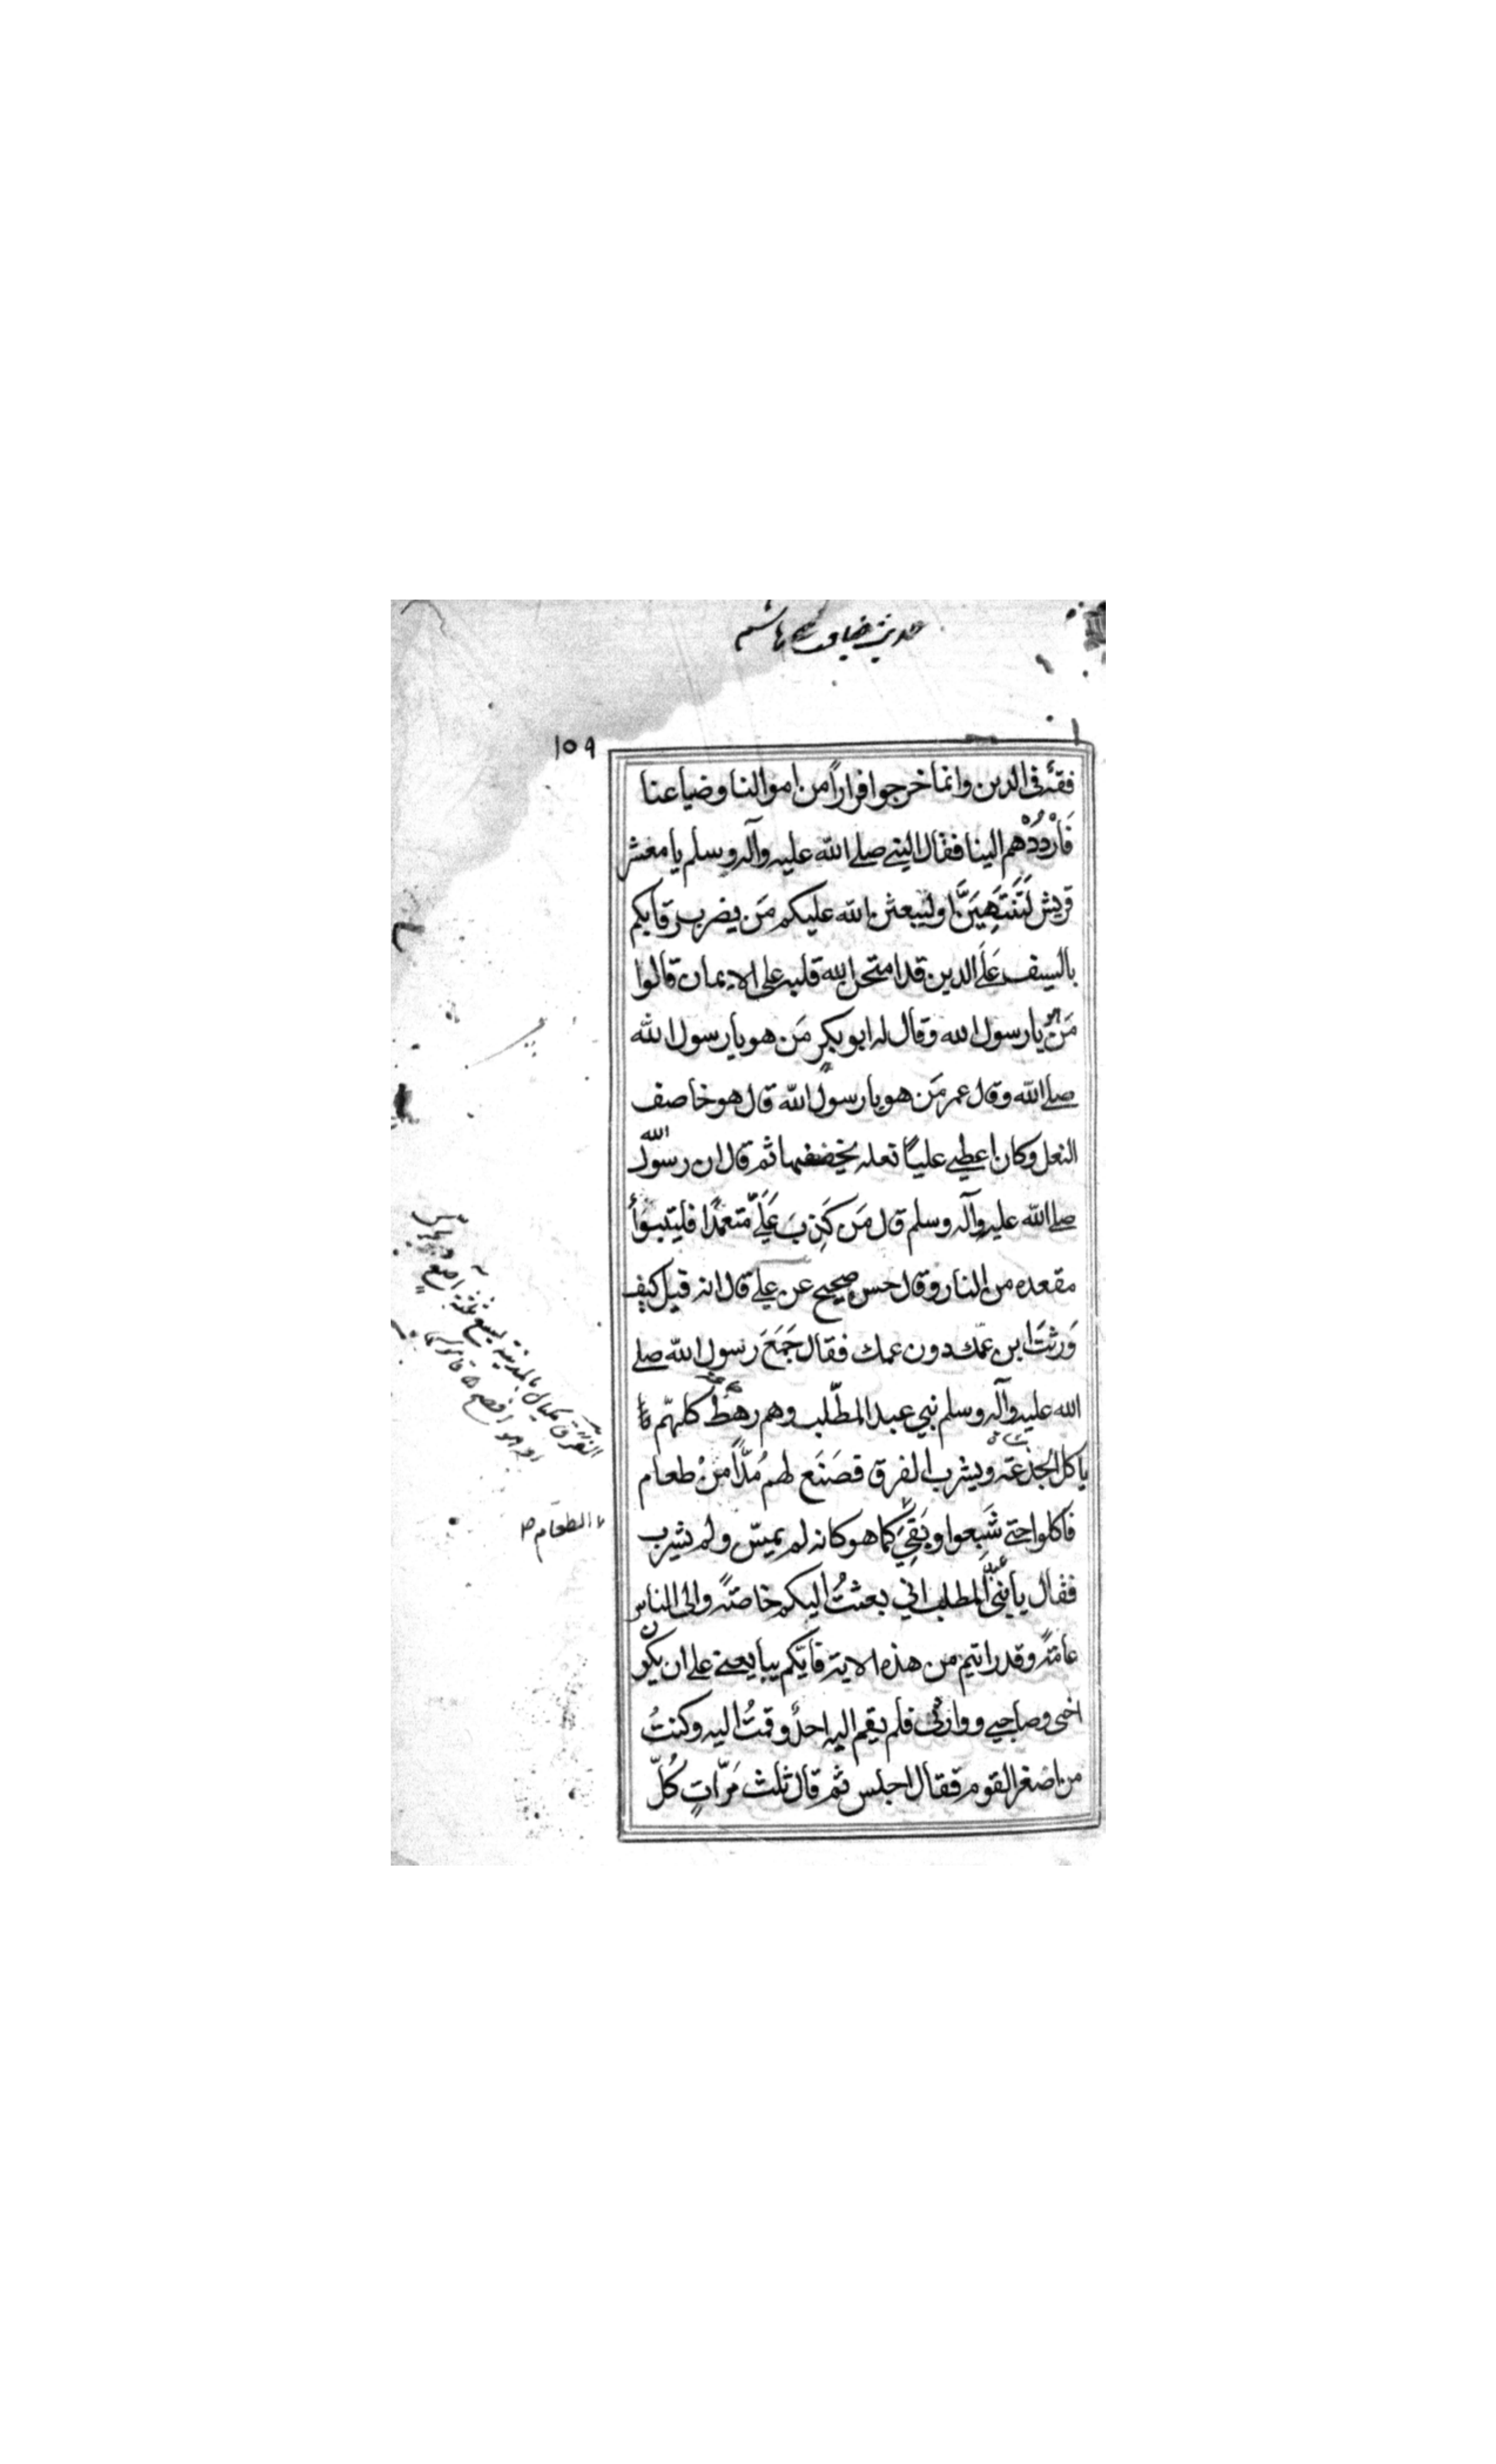 حديث ضيافت بنى هاشم
١٥٩
فقهٌ فى الدين وانما خرجوا فراراً من اموالنا وضياعنا
فَارْدُدْهم الينا فقال النبي صلے الله عليه وآله وسلم يا معشر
قريش لَتَنْتَهِيَنَّ او ليبعثن الله عليكم مَن يضرب رقابكم
بالسيف عَلَى الدين قد امتحن الله قلبه على الايمان قالوا
مَن هو يا رسول الله وقال له ابو بكرٍ مَن هو يا رسول الله
صلے الله وقال عمر مَن هو يا رسول الله قال هو خاصف
النعل وكان اعطى علياً نعله يخصفها ثم قال ان رسول الله
صلے الله عليه وآله وسلم قال مَن كَذِبَ عَلَيَّ متعمدًا فليتبوأ
مقعده من النار وقال حسن صحيح عن علے قال انه قيل كيف
وَرِثتَ ابن عمّك دون عمك فقال جَمَعَ رسول الله صلے
الله عليه وآله وسلم بني عبد المطّلب وهم رهطٌ كلهم
ياكل الجذعة ويشرب الفرق فصَنَع لهم مُدّاً مِنْ طعام
فاكلوا حتے شَبِعوا وبَقِيَ كما هو كانه لم يمسّ ولم يشرب
فقال يا بنى عبد المطلب اني بعثتُ اليكم خاصةً والى الناس
عامةً وقد رايتم من هذه الاية فايّكم يبايعنے على ان يكون
اخى وصاحبے ووارثى فلم يقم اليه احدٌ وقمتُ اليه وكنتُ
من اصغر القوم فقال اجلس ثم قال ثلث مَرّاتٍ كُلّ
الفرق مكيال بالمدينة يسع ثلثة آصع
او هو افصح قاموس
الطعام ص